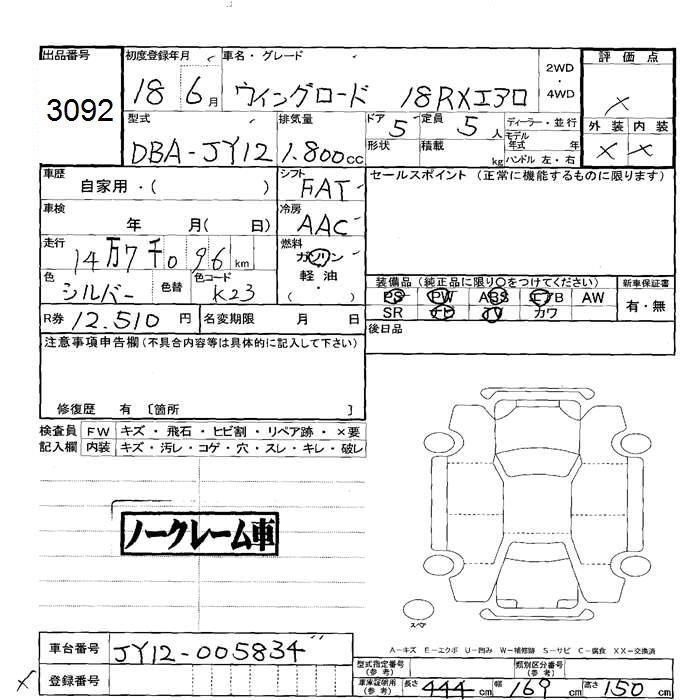 出品番号
3092
初度登録年月
18 6月
車名・グレード
ウイングロード 18RXエアロ
2WD
・
4WD
評価点
×
外装 内装
× ×
型式
DBA-JY12
排気量
1.800cc
ドア 5
定員 5人
形状
積載 kg
ディーラー・並行
モデル年式 年
ハンドル 左・右
車歴
自家用・( )
シフト
FAT
セールスポイント (正常に機能するものに限ります)
車検
年 月( 日)
冷房
AAC
走行
14万7千096km
燃料
ガソリン
軽油
・( )
色
シルバー
色替
色コード
K23
装備品(純正品に限り〇をつけてください)
PS PW ABS エアB AW
SR ナビ TV カワ
新車保証書
有・無
R券 12.510 円
名変期限 月 日
後日品
注意事項申告欄(不具合内容等は具体的に記入して下さい)
修復歴 有 〔箇所 〕
検査員記入欄
FW キズ・飛石・ヒビ割・リペア跡・×要
内装 キズ・汚レ・コゲ・穴・スレ・キレ・破レ
ノークレーム車
スペア
A-キズ E-エクボ U-凹み W-補修跡 S-サビ C-腐食 XX-交換済
車台番号 JY12-005834
× 登録番号
型式指定番号(参考)
類別区分番号(参考)
車庫証明用(参考) 長さ 444cm 幅 169cm 高さ 150cm